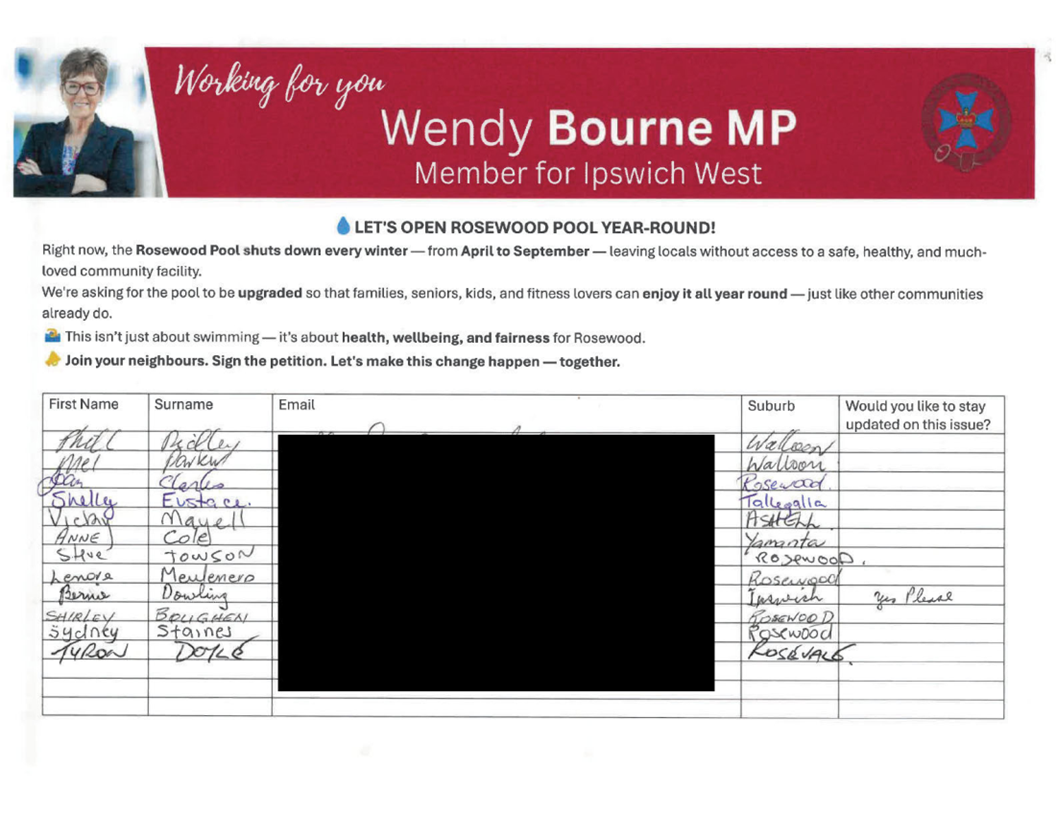 Working for you
Wendy Bourne MP
Member for Ipswich West
💧 LET'S OPEN ROSEWOOD POOL YEAR-ROUND!
Right now, the Rosewood Pool shuts down every winter — from April to September — leaving locals without access to a safe, healthy, and much-
loved community facility.
We're asking for the pool to be upgraded so that families, seniors, kids, and fitness lovers can enjoy it all year round — just like other communities
already do.
🏊 This isn't just about swimming — it's about health, wellbeing, and fairness for Rosewood.
👉 Join your neighbours. Sign the petition. Let's make this change happen — together.
First Name Surname Email Suburb Would you like to stay
updated on this issue?
Phill Ridley Walloon
Mel Walloon
Jan Clarke Rosewood.
Shelly Eustace. Tallegalla
Vicky Mayell
ANNE Cole
Steve TOWSON ROSEWOOD.
Lenore Meulenero Rosewood
Bernie Dowling Ipswich Yes Please
SHIRLEY BOUGHEN ROSEWOOD
Sydney Staines Rosewood
TYRON DOYLE ROSEVALE.